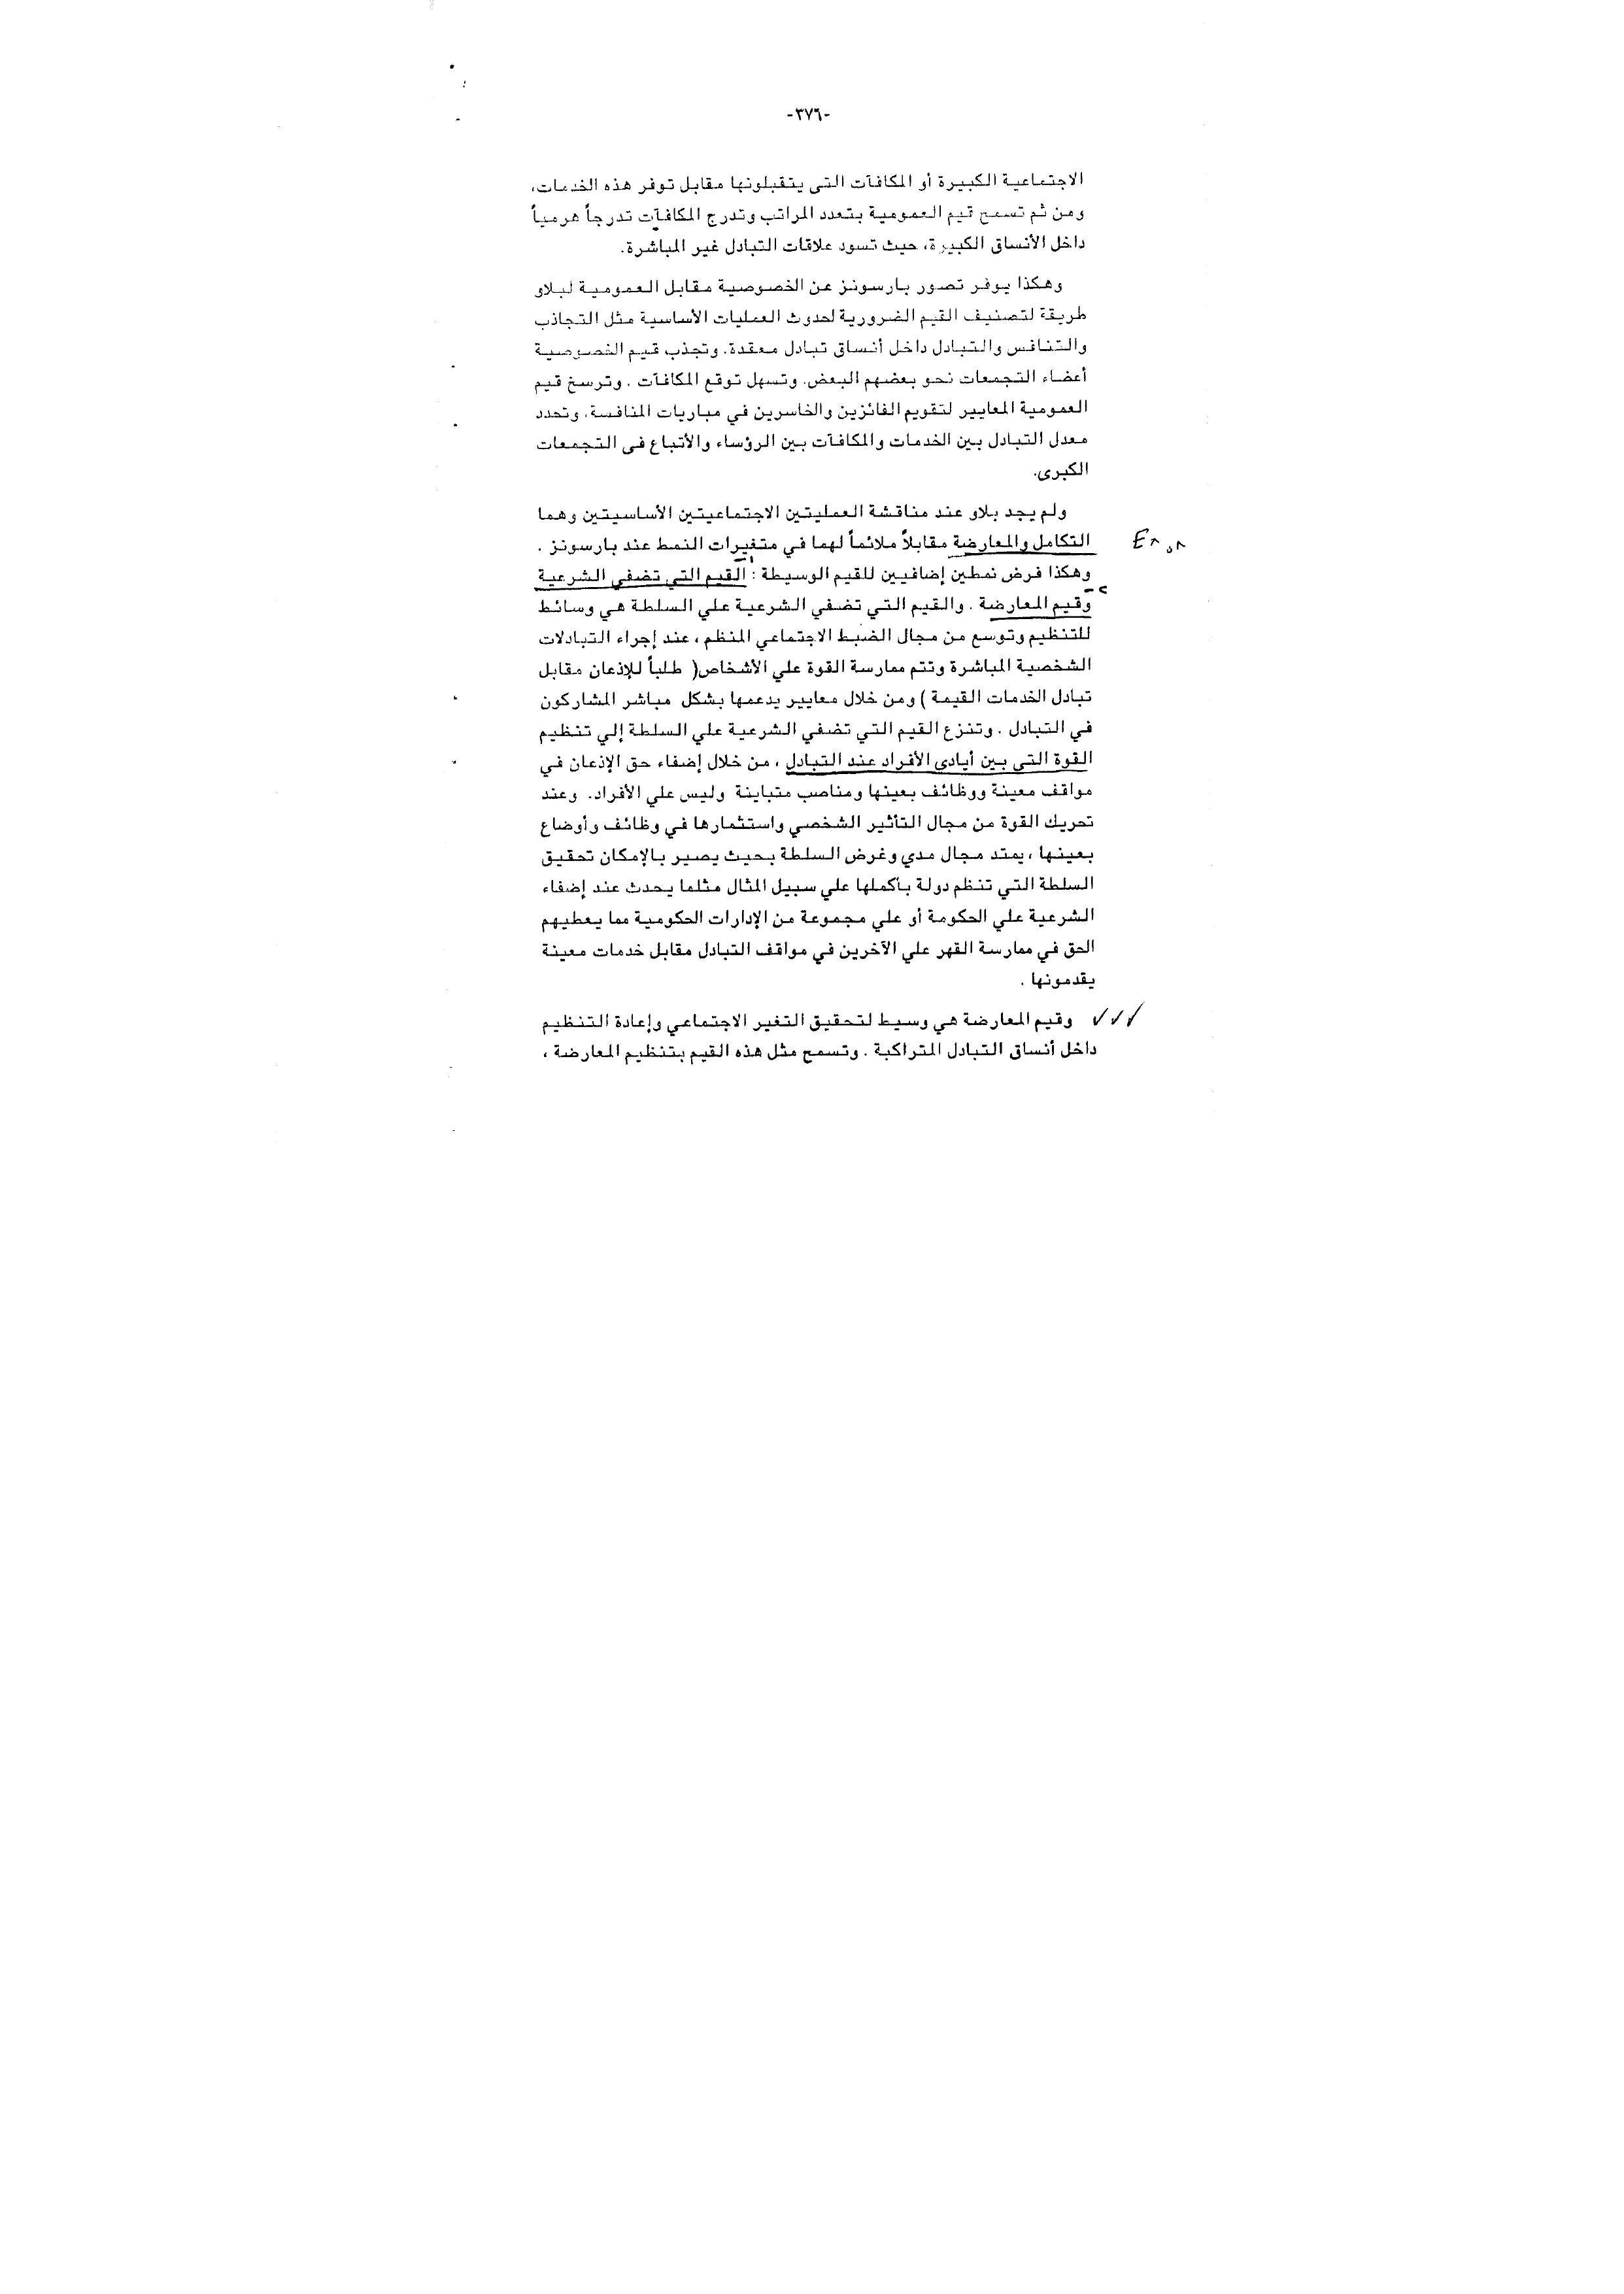 -٣٧٦-
الاجتماعية الكبيرة أو المكافآت التى يتقبلونها مقابل توفر هذه الخدمات،
ومن ثم تسمح قيم العمومية بتعدد المراتب وتدرج المكافآت تدرجاً هرمياً
داخل الأنساق الكبيرة، حيث تسود علاقات التبادل غير المباشرة.
وهكذا يوفر تصور بارسونز عن الخصوصية مقابل العمومية لبلاو
طريقة لتصنيف القيم الضرورية لحدوث العمليات الأساسية مثل التجاذب
والتنافس والتبادل داخل أنساق تبادل معقدة. وتجذب قيم الخصوصية
أعضاء التجمعات نحو بعضهم البعض. وتسهل توقع المكافآت . وترسخ قيم
العمومية المعايير لتقويم الفائزين والخاسرين في مباريات المنافسة. وتحدد
معدل التبادل بين الخدمات والمكافآت بين الرؤساء والأتباع فى التجمعات
الكبرى.
ولم يجد بلاو عند مناقشة العمليتين الاجتماعيتين الأساسيتين وهما
التكامل والمعارضة مقابلاً ملائماً لهما في متغيرات النمط عند بارسونز .
وهكذا فرض نمطين إضافيين للقيم الوسيطة : القيم التي تضفي الشرعية
وقيم المعارضة . والقيم التي تضفي الشرعية علي السلطة هي وسائط
للتنظيم وتوسع من مجال الضبط الاجتماعي المنظم ، عند إجراء التبادلات
الشخصية المباشرة وتتم ممارسة القوة علي الأشخاص( طلباً للإذعان مقابل
تبادل الخدمات القيمة ) ومن خلال معايير يدعمها بشكل مباشر المشاركون
في التبادل . وتنزع القيم التي تضفي الشرعية علي السلطة إلي تنظيم
القوة التى بين أيادى الأفراد عند التبادل ، من خلال إضفاء حق الإذعان في
مواقف معينة ووظائف بعينها ومناصب متباينة وليس علي الأفراد. وعند
تحريك القوة من مجال التأثير الشخصي واستثمارها في وظائف وأوضاع
بعينها ، يمتد مجال مدي وغرض السلطة بحيث يصير بالإمكان تحقيق
السلطة التي تنظم دولة بأكملها علي سبيل المثال مثلما يحدث عند إضفاء
الشرعية علي الحكومة أو علي مجموعة من الإدارات الحكومية مما يعطيهم
الحق في ممارسة القهر علي الآخرين في مواقف التبادل مقابل خدمات معينة
يقدمونها .
وقيم المعارضة هي وسيط لتحقيق التغير الاجتماعي وإعادة التنظيم
داخل أنساق التبادل المتراكبة . وتسمح مثل هذه القيم بتنظيم المعارضة ،